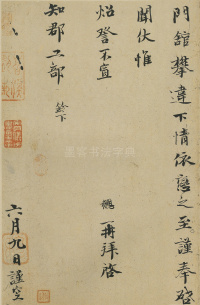 門舘攀違下情依戀之至謹奉啓
聞伏惟
炤詧不宣
再拜啓
知郡工部
六月九日謹空